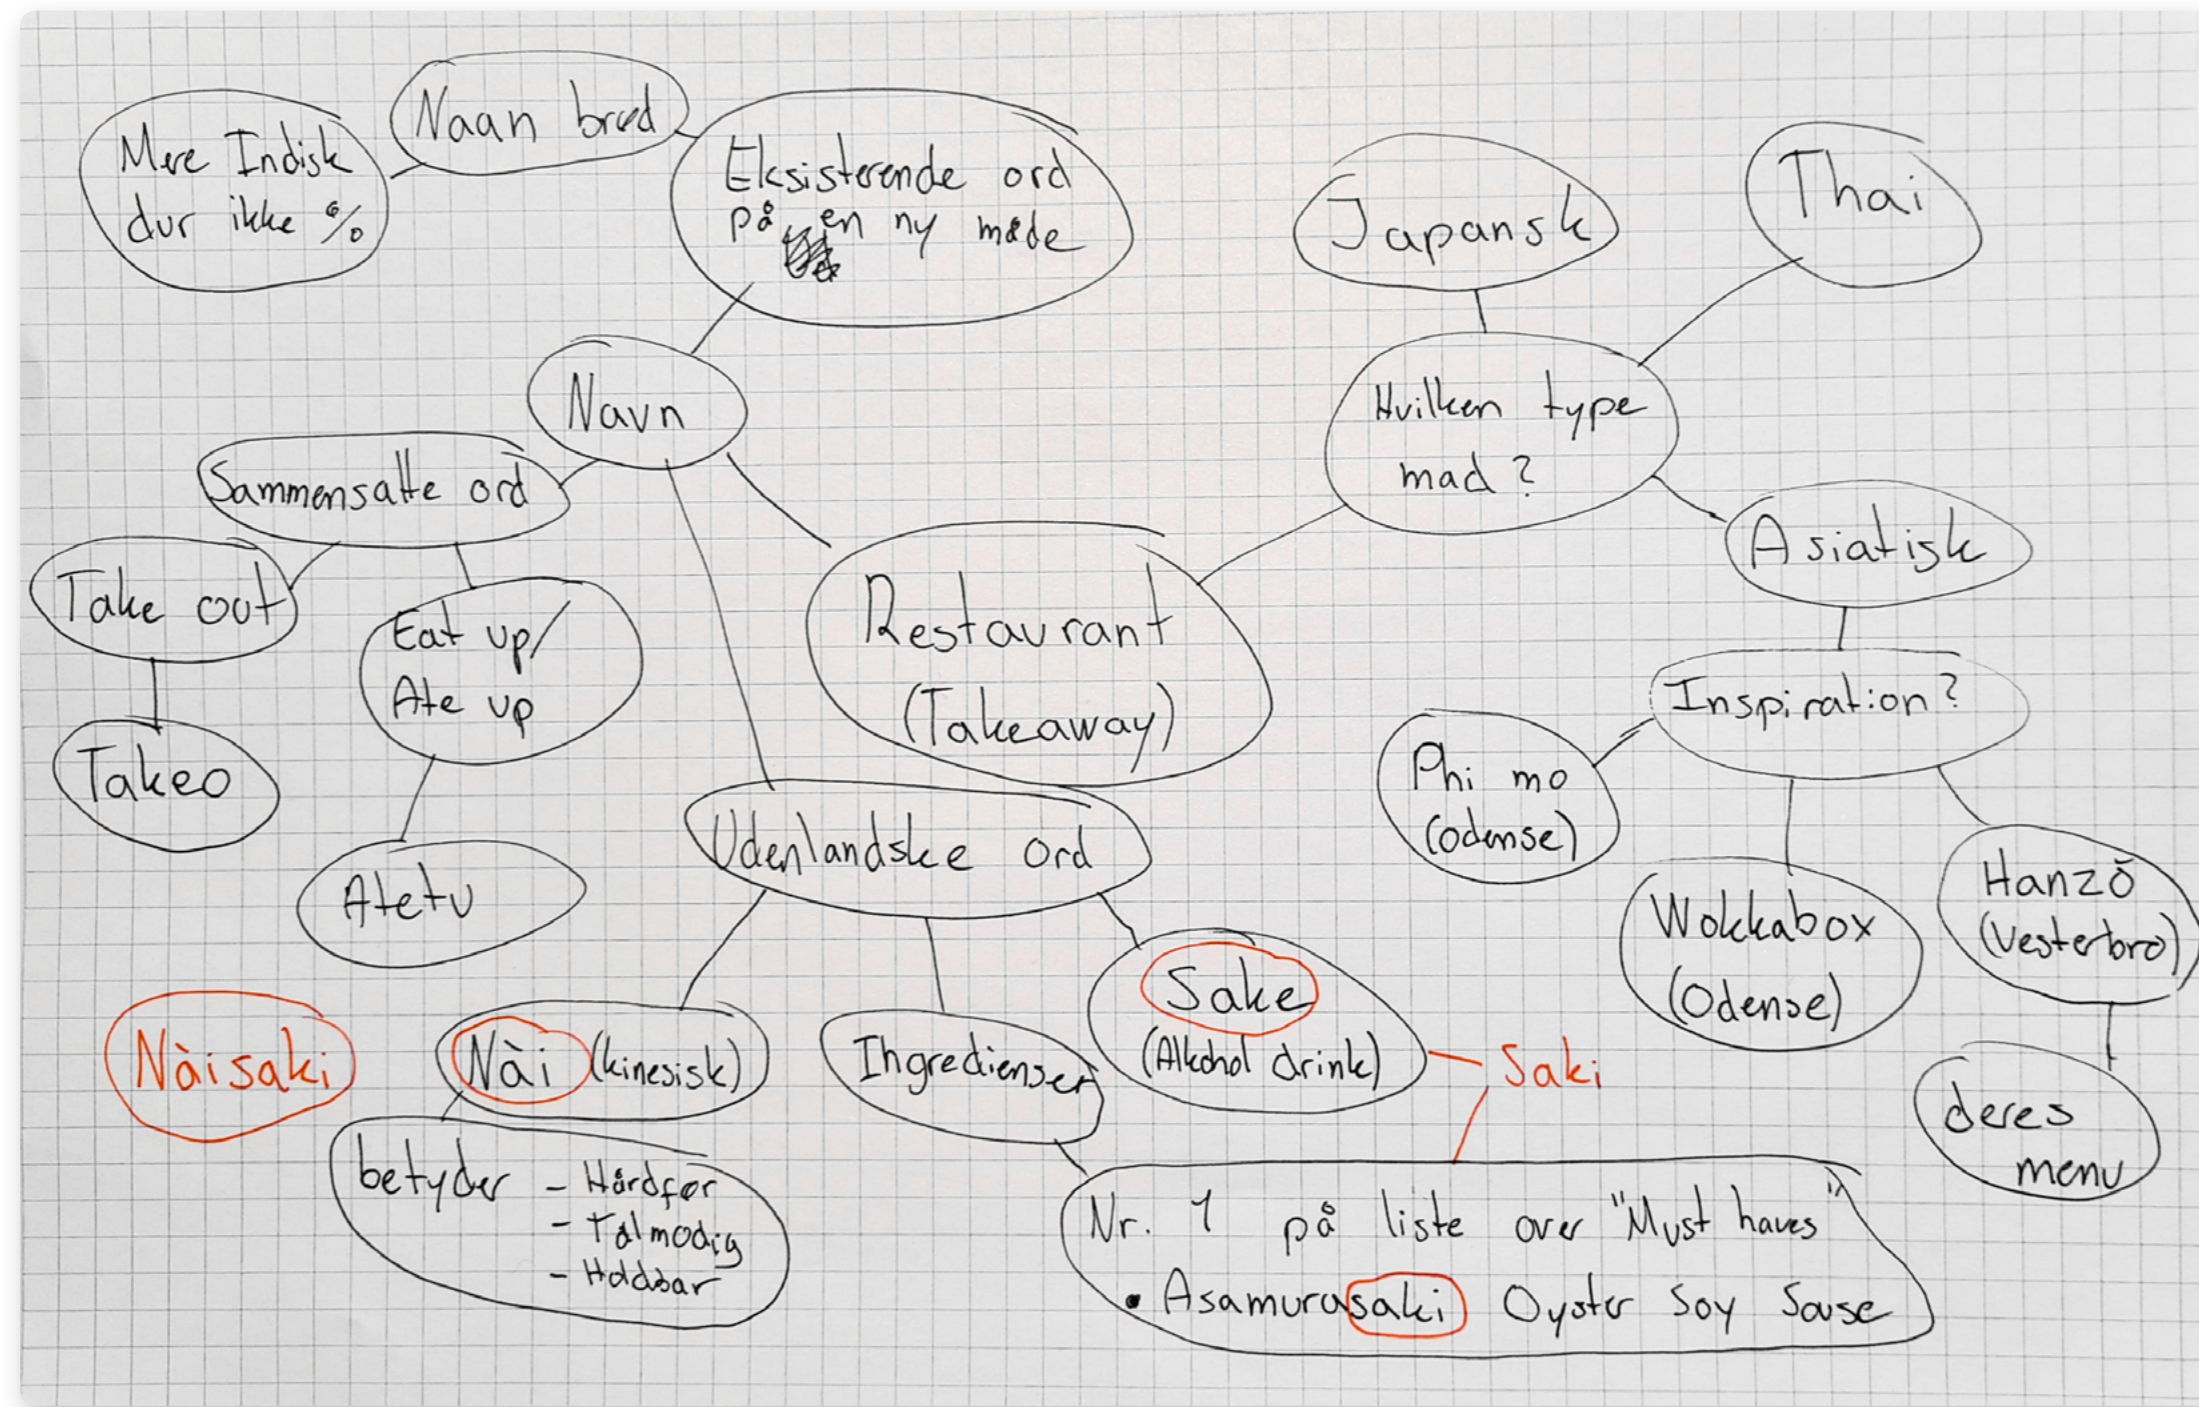 Naan brød
Mere Indisk
dur ikke %
Eksisterende ord
på en ny måde
Japansk
Thai
Navn
Hvilken type
mad?
Sammensatte ord
Asiatisk
Take out
Eat up/
Ate up
Restaurant
(Takeaway)
Inspiration?
Takeo
Phi mo
(Odense)
Udenlandske ord
Atetu
Wokkabox
(Odense)
Hanzŏ
(Vesterbro)
Sake
(Alkohol drink)
Saki
Nàisaki
Nài (kinesisk)
Ingredienser
deres
menu
betyder - Hårdfør
- Tålmodig
- Holdbar
Nr. 1 på liste over "Must haves"
• Asamurasaki Oyster Soy Souse